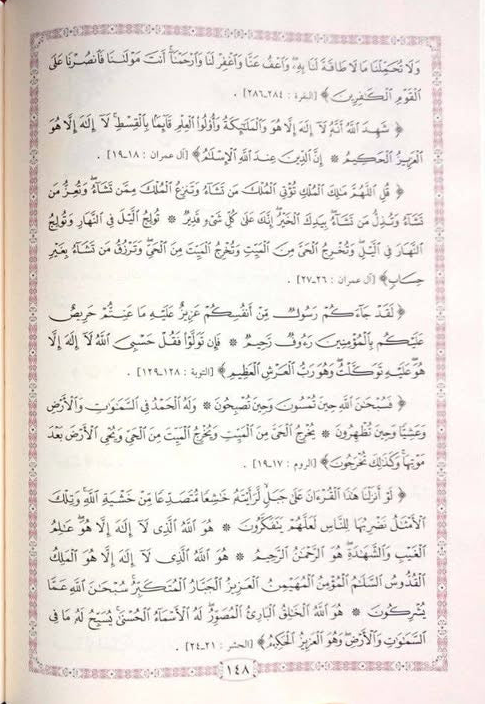 وَلَا تُحَمِّلْنَا مَا لَا طَاقَةَ لَنَا بِهِۦ ۖ وَٱعْفُ عَنَّا وَٱغْفِرْ لَنَا وَٱرْحَمْنَآ ۚ أَنتَ مَوْلَىٰنَا فَٱنصُرْنَا عَلَى
ٱلْقَوْمِ ٱلْكَٰفِرِينَ ﴾ [البقرة : ٢٨٤ـ٢٨٦] .
﴿ شَهِدَ ٱللَّهُ أَنَّهُۥ لَآ إِلَٰهَ إِلَّا هُوَ وَٱلْمَلَٰٓئِكَةُ وَأُو۟لُوا۟ ٱلْعِلْمِ قَآئِمًۢا بِٱلْقِسْطِ ۚ لَآ إِلَٰهَ إِلَّا هُوَ
ٱلْعَزِيزُ ٱلْحَكِيمُ * إِنَّ ٱلدِّينَ عِندَ ٱللَّهِ ٱلْإِسْلَٰمُ ﴾ [آل عمران : ١٨ـ١٩] .
﴿ قُلِ ٱللَّهُمَّ مَٰلِكَ ٱلْمُلْكِ تُؤْتِى ٱلْمُلْكَ مَن تَشَآءُ وَتَنزِعُ ٱلْمُلْكَ مِمَّن تَشَآءُ وَتُعِزُّ مَن
تَشَآءُ وَتُذِلُّ مَن تَشَآءُ ۖ بِيَدِكَ ٱلْخَيْرُ ۖ إِنَّكَ عَلَىٰ كُلِّ شَىْءٍ قَدِيرٌ * تُولِجُ ٱلَّيْلَ فِى ٱلنَّهَارِ وَتُولِجُ
ٱلنَّهَارَ فِى ٱلَّيْلِ ۖ وَتُخْرِجُ ٱلْحَىَّ مِنَ ٱلْمَيِّتِ وَتُخْرِجُ ٱلْمَيِّتَ مِنَ ٱلْحَىِّ ۖ وَتَرْزُقُ مَن تَشَآءُ بِغَيْرِ
حِسَابٍ ﴾ [آل عمران : ٢٦ـ٢٧] .
﴿ لَقَدْ جَآءَكُمْ رَسُولٌ مِّنْ أَنفُسِكُمْ عَزِيزٌ عَلَيْهِ مَا عَنِتُّمْ حَرِيصٌ
عَلَيْكُم بِٱلْمُؤْمِنِينَ رَءُوفٌ رَّحِيمٌ * فَإِن تَوَلَّوْا۟ فَقُلْ حَسْبِىَ ٱللَّهُ لَآ إِلَٰهَ إِلَّا
هُوَ ۖ عَلَيْهِ تَوَكَّلْتُ ۖ وَهُوَ رَبُّ ٱلْعَرْشِ ٱلْعَظِيمِ ﴾ [التوبة : ١٢٨ـ١٢٩] .
﴿ فَسُبْحَٰنَ ٱللَّهِ حِينَ تُمْسُونَ وَحِينَ تُصْبِحُونَ * وَلَهُ ٱلْحَمْدُ فِى ٱلسَّمَٰوَٰتِ وَٱلْأَرْضِ
وَعَشِيًّا وَحِينَ تُظْهِرُونَ * يُخْرِجُ ٱلْحَىَّ مِنَ ٱلْمَيِّتِ وَيُخْرِجُ ٱلْمَيِّتَ مِنَ ٱلْحَىِّ وَيُحْىِ ٱلْأَرْضَ بَعْدَ
مَوْتِهَا ۚ وَكَذَٰلِكَ تُخْرَجُونَ ﴾ [الروم : ١٧ـ١٩] .
﴿ لَوْ أَنزَلْنَا هَٰذَا ٱلْقُرْءَانَ عَلَىٰ جَبَلٍ لَّرَأَيْتَهُۥ خَٰشِعًا مُّتَصَدِّعًا مِّنْ خَشْيَةِ ٱللَّهِ ۚ وَتِلْكَ
ٱلْأَمْثَٰلُ نَضْرِبُهَا لِلنَّاسِ لَعَلَّهُمْ يَتَفَكَّرُونَ * هُوَ ٱللَّهُ ٱلَّذِى لَآ إِلَٰهَ إِلَّا هُوَ ۖ عَٰلِمُ
ٱلْغَيْبِ وَٱلشَّهَٰدَةِ ۖ هُوَ ٱلرَّحْمَٰنُ ٱلرَّحِيمُ * هُوَ ٱللَّهُ ٱلَّذِى لَآ إِلَٰهَ إِلَّا هُوَ ٱلْمَلِكُ
ٱلْقُدُّوسُ ٱلسَّلَٰمُ ٱلْمُؤْمِنُ ٱلْمُهَيْمِنُ ٱلْعَزِيزُ ٱلْجَبَّارُ ٱلْمُتَكَبِّرُ ۚ سُبْحَٰنَ ٱللَّهِ عَمَّا
يُشْرِكُونَ * هُوَ ٱللَّهُ ٱلْخَٰلِقُ ٱلْبَارِئُ ٱلْمُصَوِّرُ ۖ لَهُ ٱلْأَسْمَآءُ ٱلْحُسْنَىٰ ۚ يُسَبِّحُ لَهُۥ مَا فِى
ٱلسَّمَٰوَٰتِ وَٱلْأَرْضِ ۖ وَهُوَ ٱلْعَزِيزُ ٱلْحَكِيمُ ﴾ [الحشر : ٢١ـ٢٤] .
١٤٨